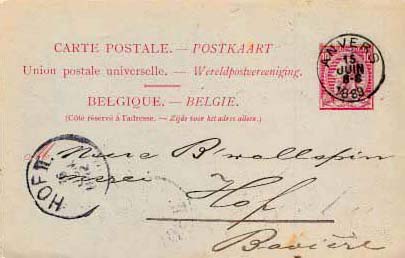 CARTE POSTALE. — POSTKAART
Union postale universelle. — Wereldpostvereeniging.
BELGIQUE. — BELGIE.
(Côté réservé à l'adresse. — Zijde voor het adres alleen.)
ANVERS
15
JUIN
1889
HOF
Hof
Bavière